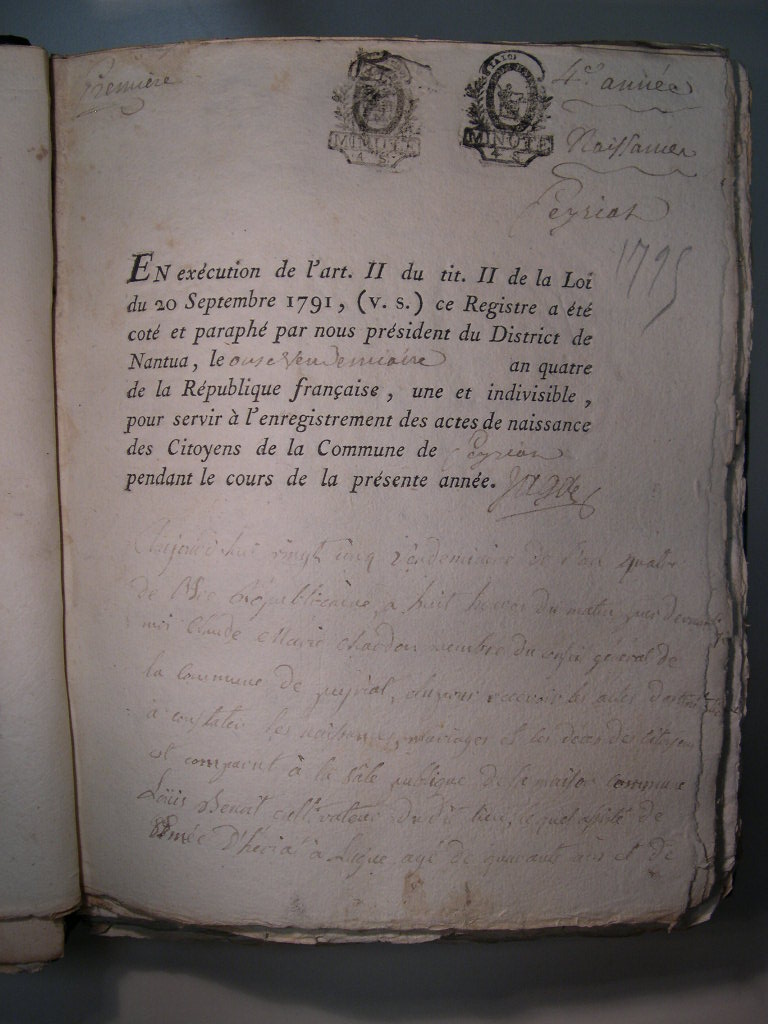 Première
LA LOI
MINUTE
4 S
LA LOI
MINUTE
4 S
4.e année
Naissances
Peyriat
1795
EN exécution de l'art. II du tit. II de la Loi
du 20 Septembre 1791, (v. s.) ce Registre a été
coté et paraphé par nous président du District de
Nantua, le onze Vendemiaire an quatre
de la République françaife, une et indivisible,
pour servir à l'enregistrement des actes de naissance
des Citoyens de la Commune de Peyriat
pendant le cours de la présente année.
Aujourd'hui vingt cinq Vendemiaire de l'an quatre
de Républicaine, a huit heures du matin par devant
moi Claude Marie membre du général de
la Commune de recevoir les actes
à constater les naissances, mariages et les deces des Citoyens
est comparut à la sâle publique de la maison commune
Loüis Benoit cultivateur du dit lieu, lequel assisté de
Aimée à agé de quarante ans et de